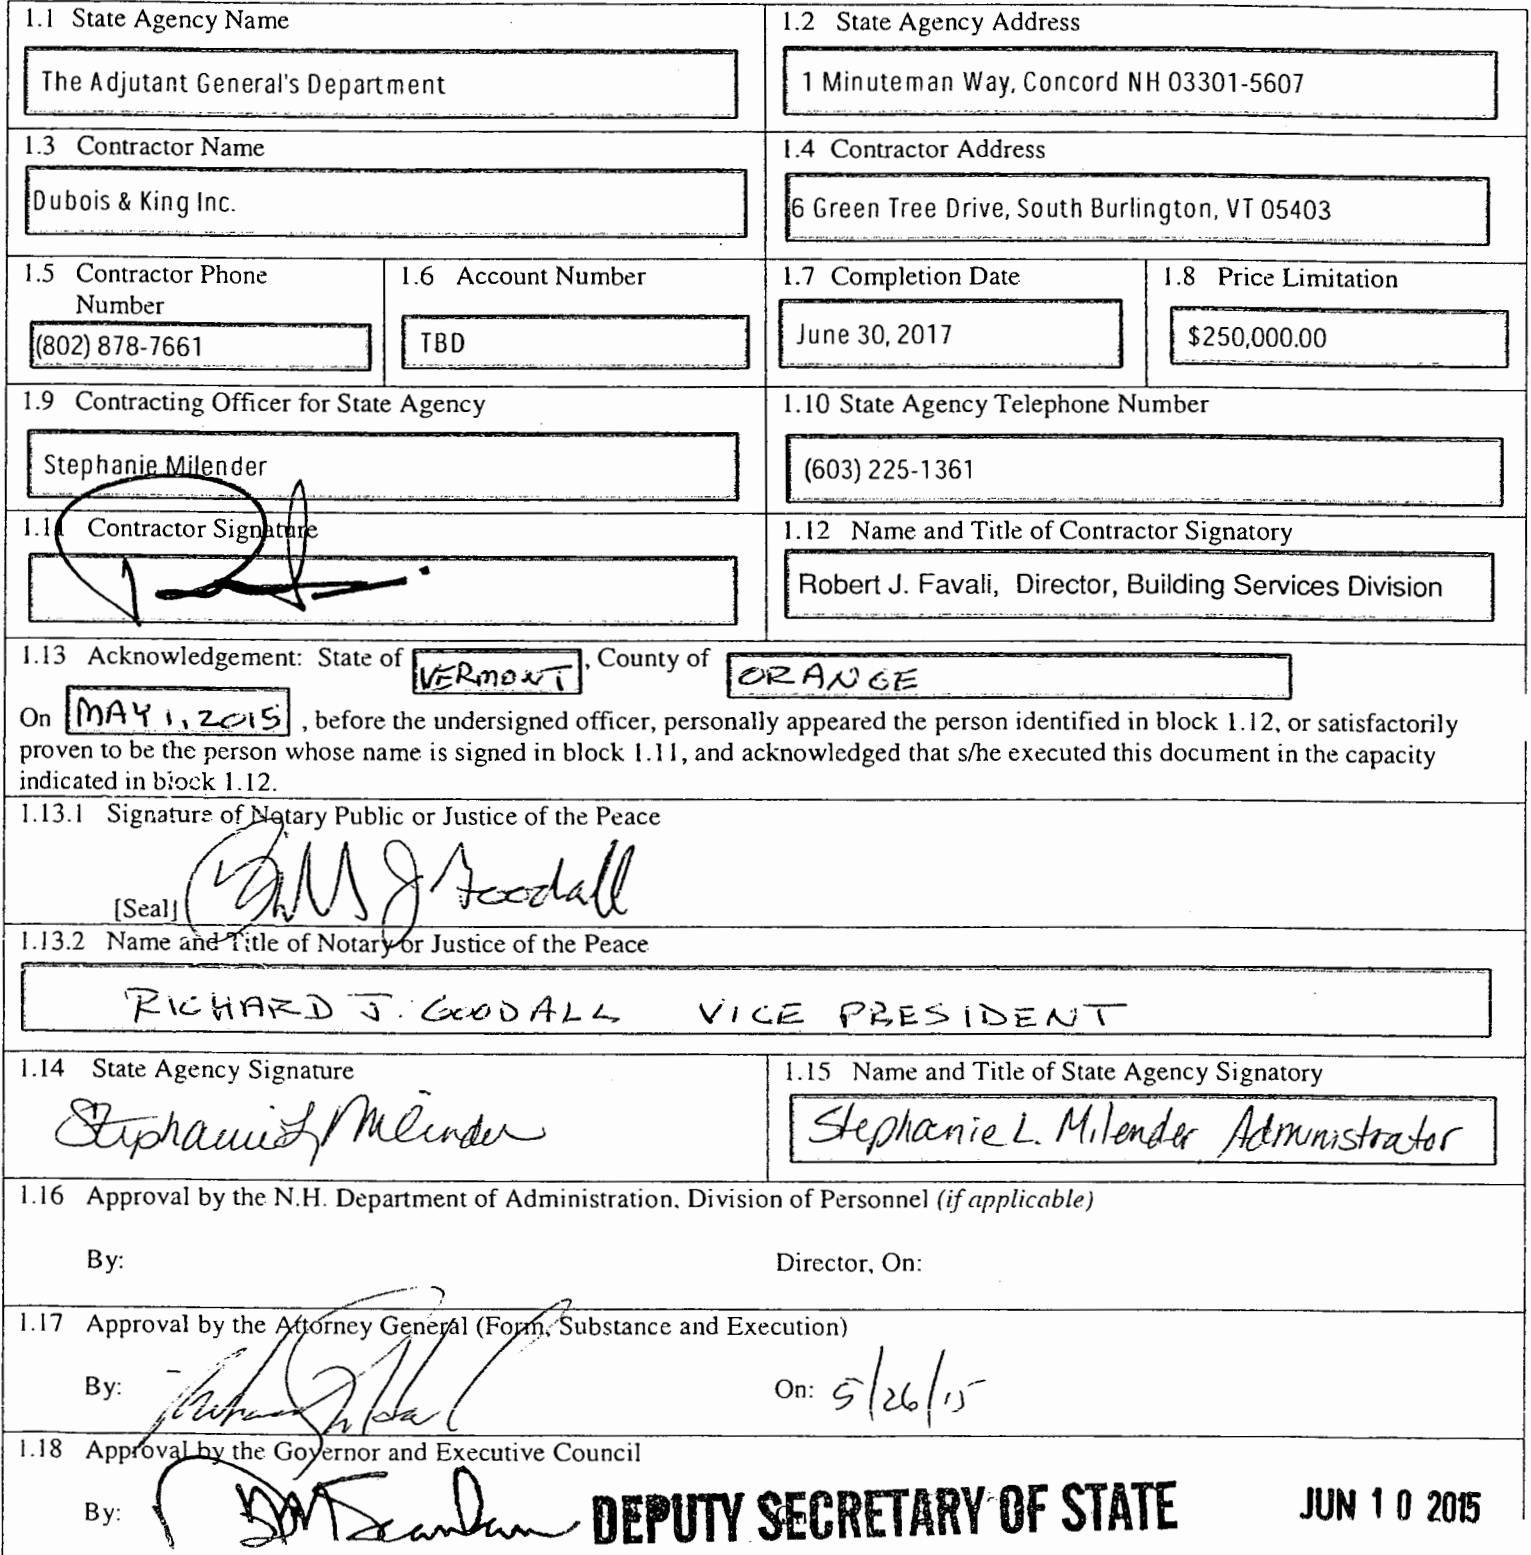 1.1 State Agency Name
The Adjutant General's Department
1.2 State Agency Address
1 Minuteman Way, Concord NH 03301-5607
1.3 Contractor Name
Dubois & King Inc.
1.4 Contractor Address
6 Green Tree Drive, South Burlington, VT 05403
1.5 Contractor Phone
Number
(802) 878-7661
1.6 Account Number
TBD
1.7 Completion Date
June 30, 2017
1.8 Price Limitation
$250,000.00
1.9 Contracting Officer for State Agency
Stephanie Milender
1.10 State Agency Telephone Number
(603) 225-1361
1.11 Contractor Signature
1.12 Name and Title of Contractor Signatory
Robert J. Favali, Director, Building Services Division
1.13 Acknowledgement: State of VERMONT, County of ORANGE
On MAY 1, 2015, before the undersigned officer, personally appeared the person identified in block 1.12, or satisfactorily
proven to be the person whose name is signed in block 1.11, and acknowledged that s/he executed this document in the capacity
indicated in block 1.12.
1.13.1 Signature of Notary Public or Justice of the Peace
J Goodall
[Seal]
1.13.2 Name and Title of Notary or Justice of the Peace
RICHARD J. GOODALL VICE PRESIDENT
1.14 State Agency Signature
Stephanie L Milender
1.15 Name and Title of State Agency Signatory
Stephanie L. Milender Administrator
1.16 Approval by the N.H. Department of Administration, Division of Personnel (if applicable)
By: Director, On:
1.17 Approval by the Attorney General (Form, Substance and Execution)
By: On: 5/26/15
1.18 Approval by the Governor and Executive Council
By: DEPUTY SECRETARY OF STATE JUN 10 2015